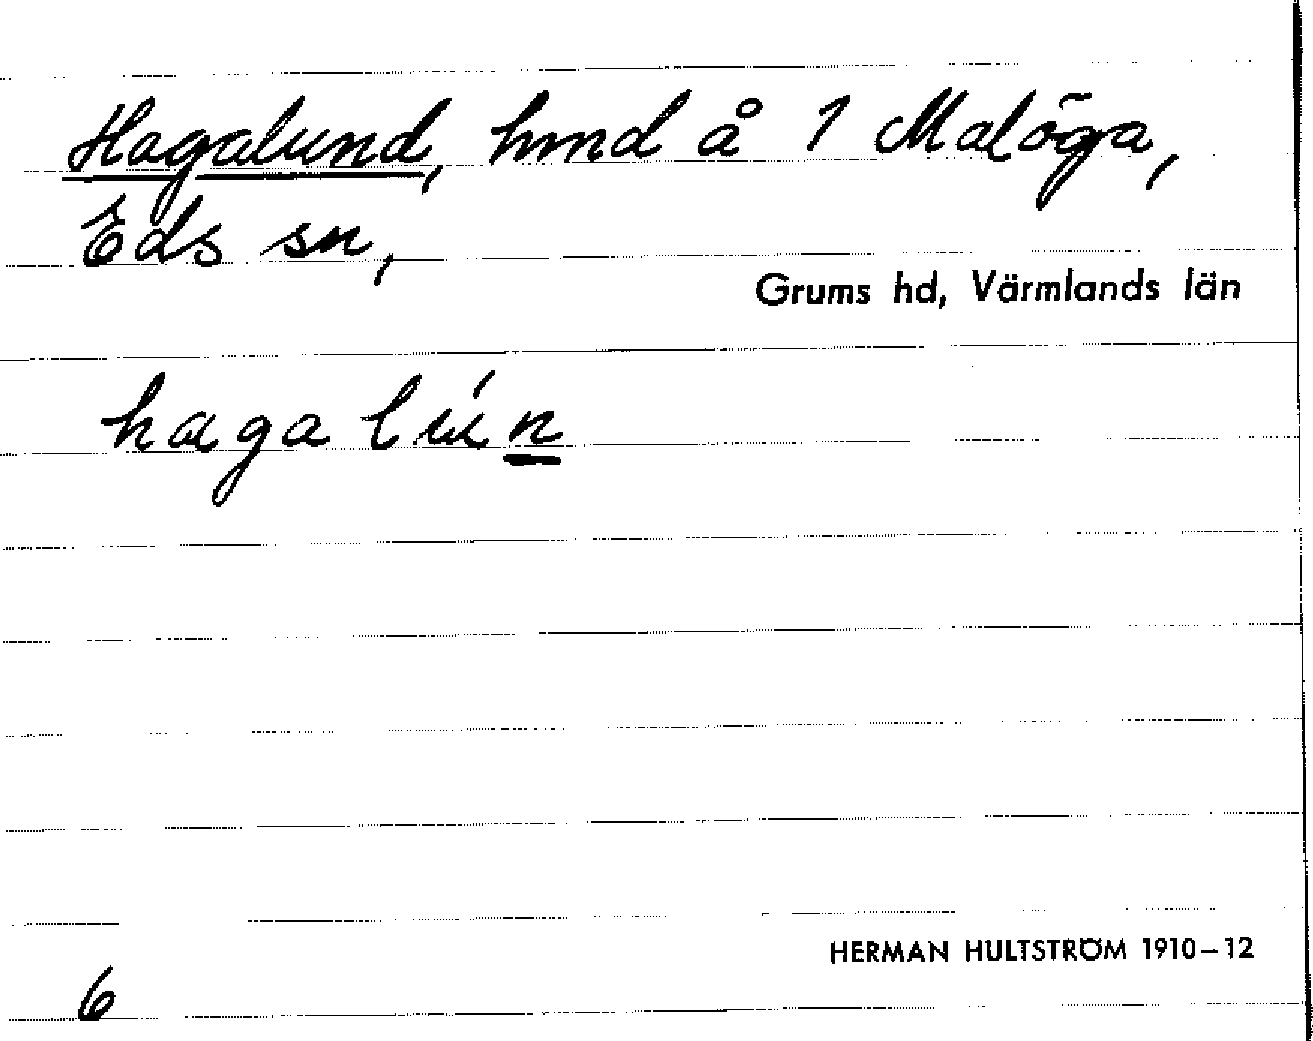 Hagalund, hmd å 1 Malöga,
Eds sn,
Grums hd, Värmlands län
haga lún
HERMAN HULTSTRÖM 1910–12
6